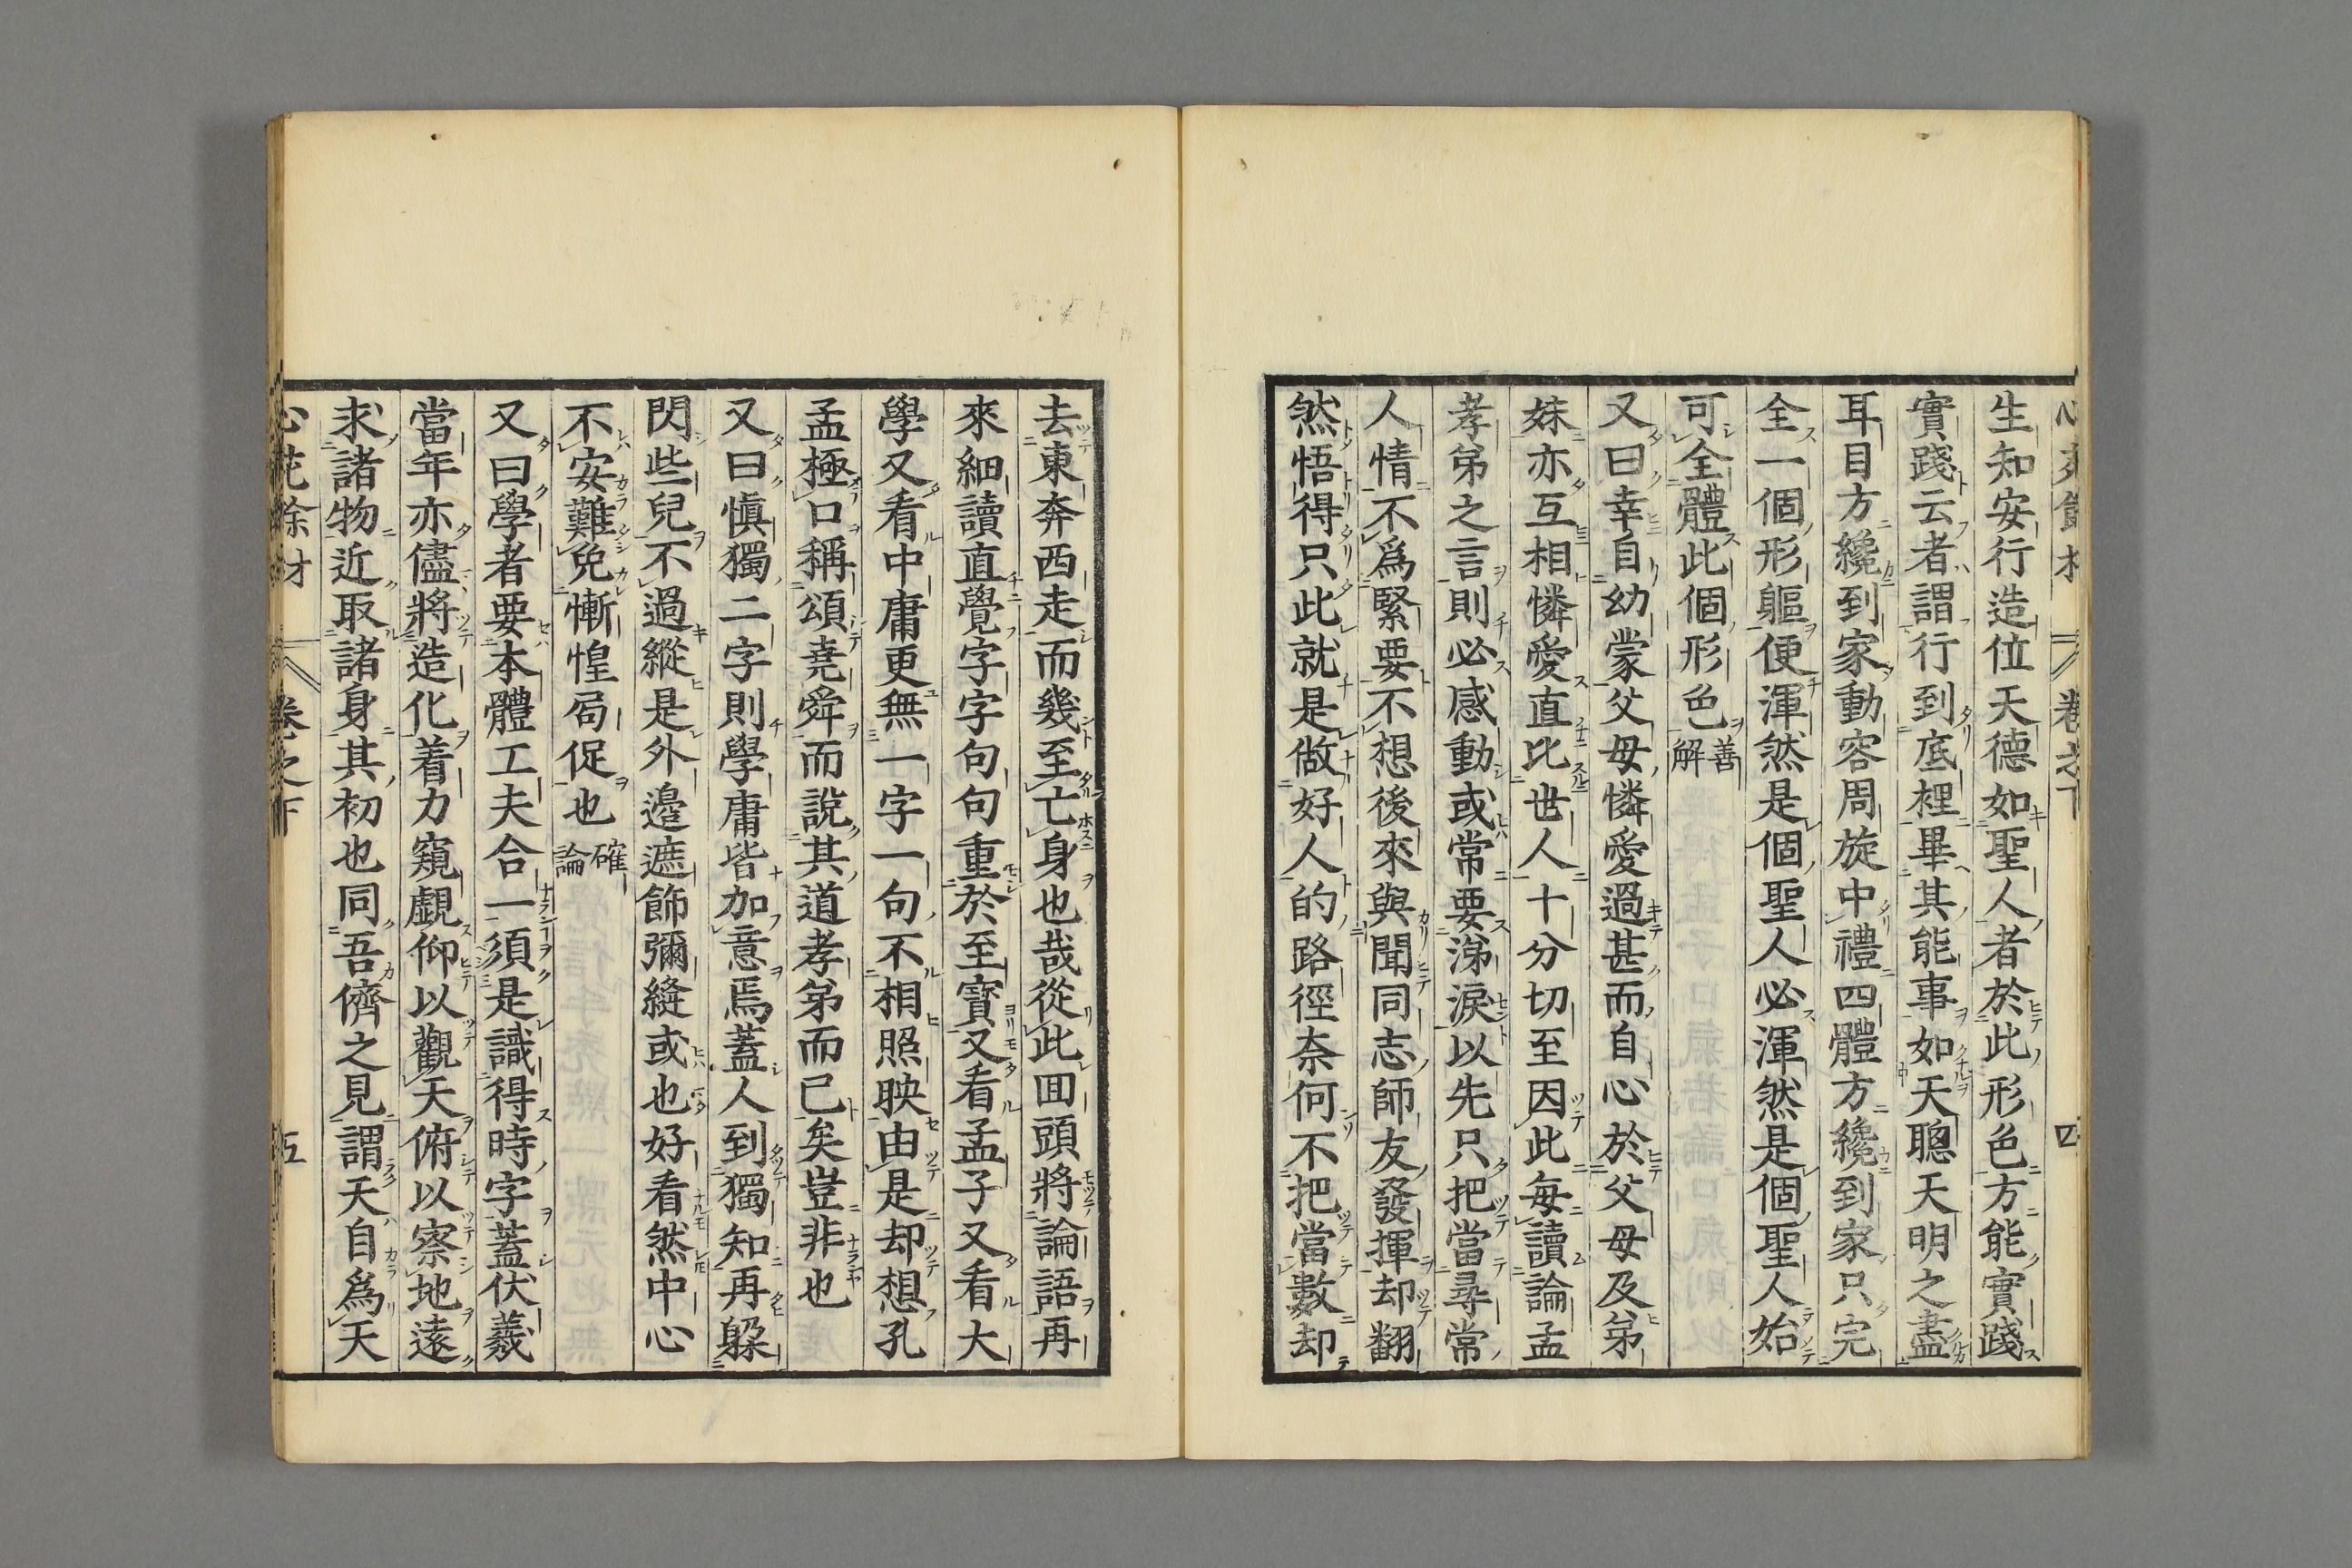 生知安行造位天德如聖人者於此形色方能實踐
實踐云者謂行到底裡畢其能事如天聰天明之盡
耳目方纔到家動容周旋中禮四體方纔到家只完
全一個形軀便渾然是個聖人必渾然是個聖人始
可全體此個形色善解
又曰幸自幼蒙父母憐愛過甚而自心於父母及弟
妹亦互相憐愛直比世人十分切至因此每讀論孟
孝弟之言則必感動或常要涕淚以先只把當尋常
人情不爲緊要不想後來與聞同志師友發揮却翻
然悟得只此就是做好人的路徑奈何不把當數却
去東奔西走而幾至亡身也哉從此囬頭將論語再
來細讀直覺字字句句重於至寳又看孟子又看大
學又看中庸更無一字一句不相照映由是却想孔
孟極口稱頌堯舜而說其道孝弟而已矣豈非也
又曰愼獨二字則學庸皆加意焉蓋人到獨知再躱
閃些兒不過縱是外邊遮飾彌縫或也好看然中心
不安難免慚惶局促也確論
又曰學者要本體工夫合一須是識得時字蓋伏羲
當年亦儘將造化着力窺覷仰以觀天俯以察地遠
求諸物近取諸身其初也同吾儕之見謂天自爲天
心花餘材 卷之下 五